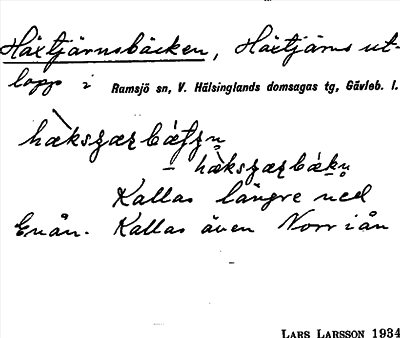 Häxtjärnsbäcken, Häxtjärns ut-
lopp i Ramsjö sn, V. Hälsinglands domsagas tg, Gävleb. l.
Kallas längre ned
Enån. Kallas även Norriån
LARS LARSSON 1934